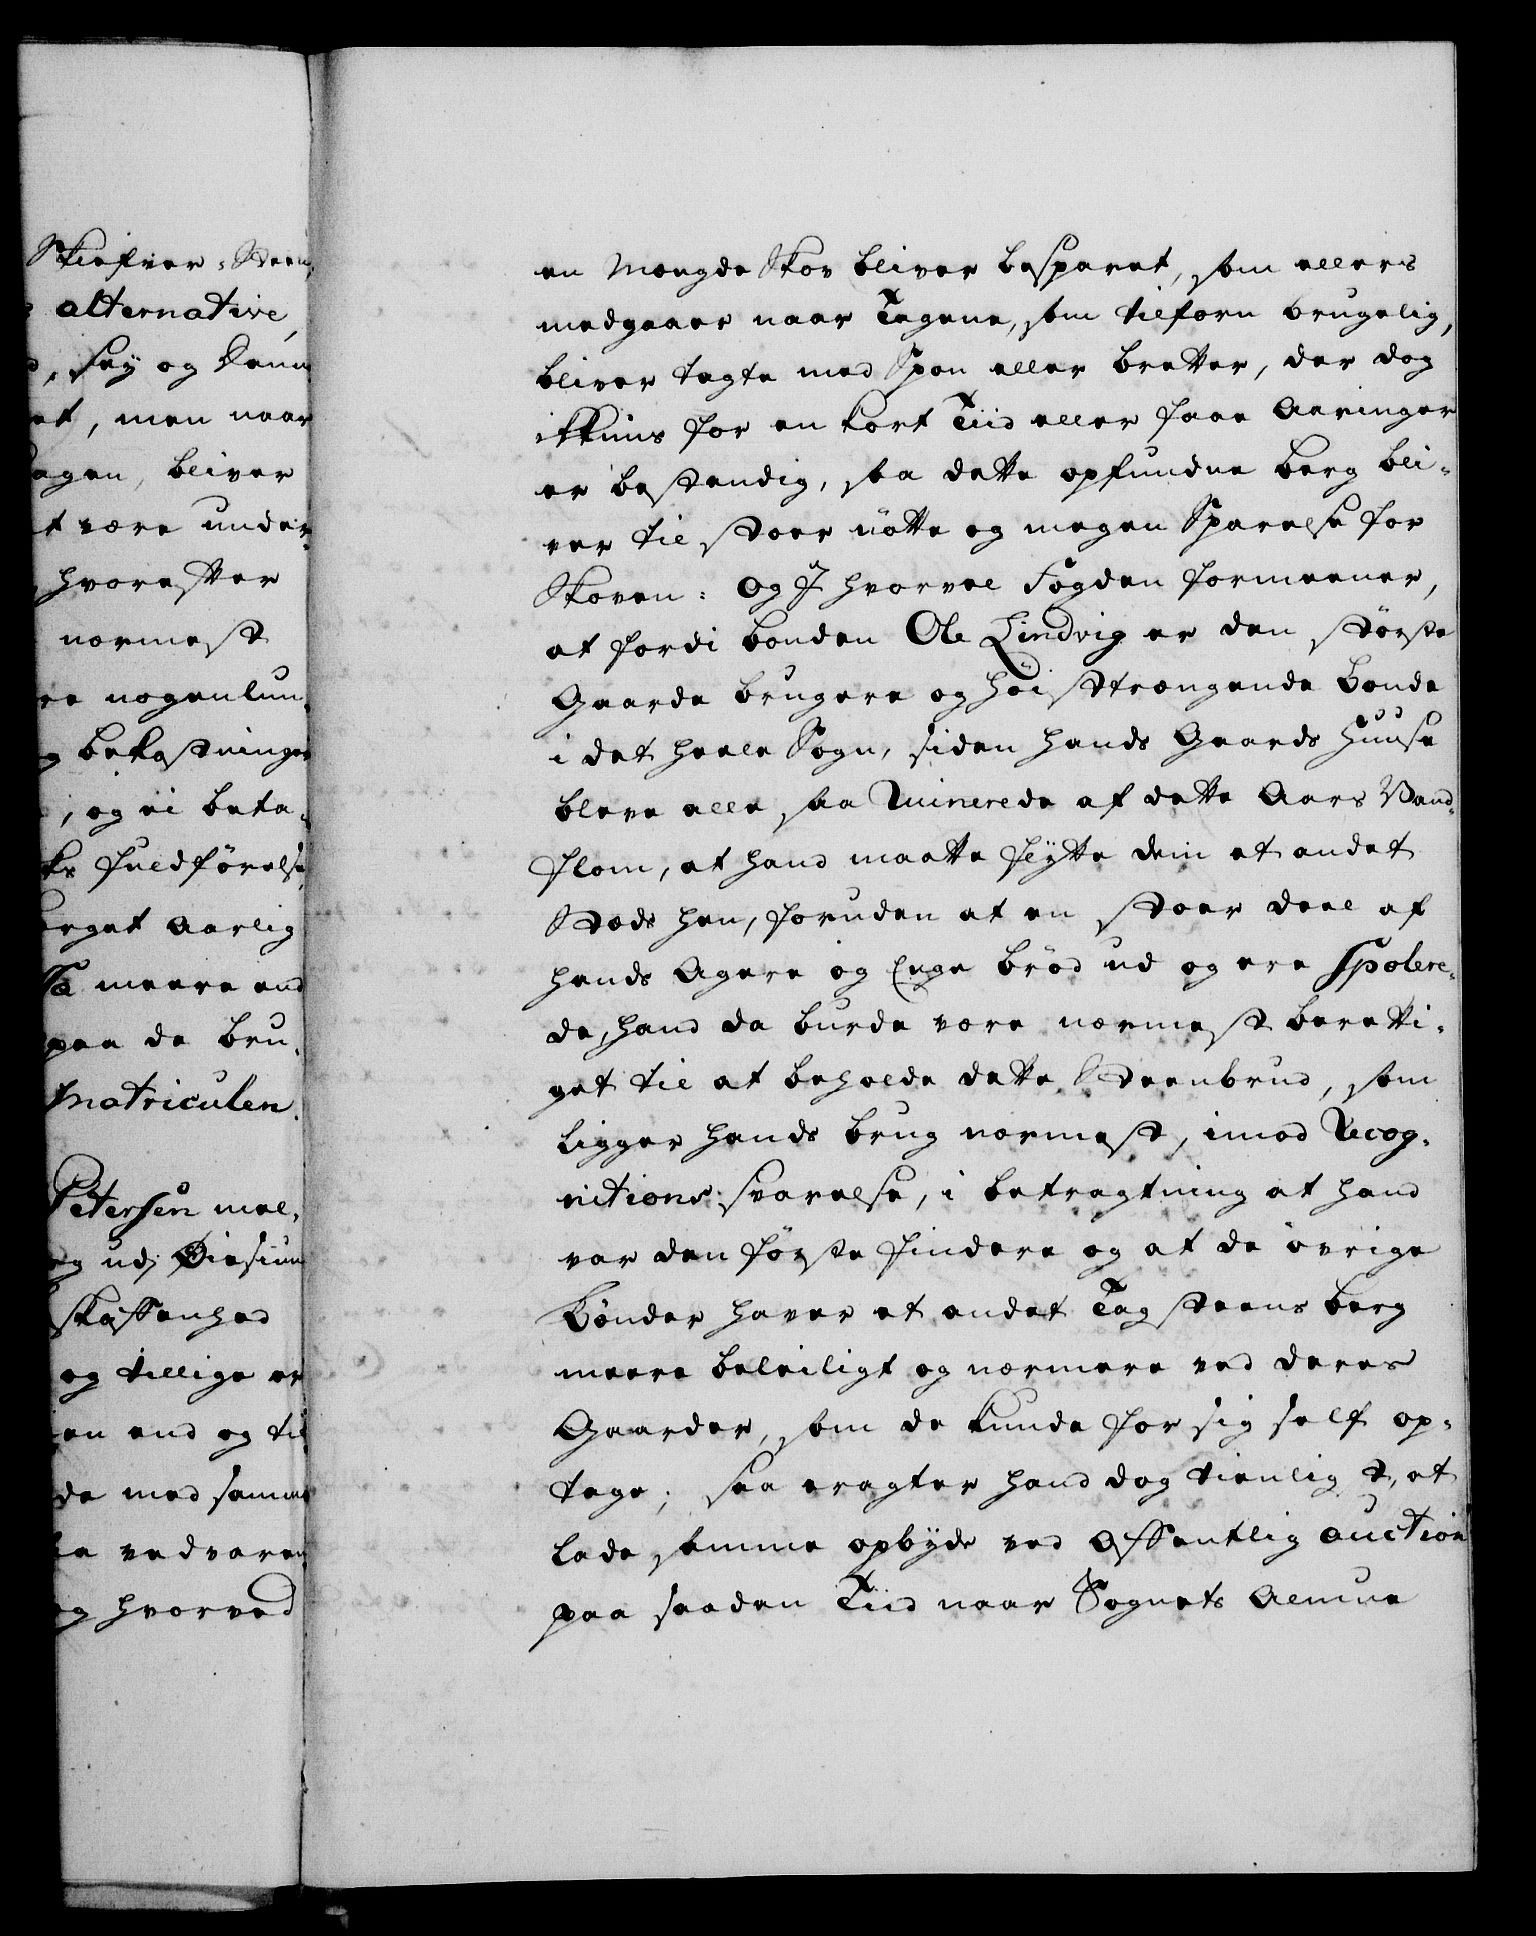 Skiefver-Steen
alternative,
, frj og Kaun
et, men naar
agen, bliver
t være under
hvorefter
nærmest
re nogenlun
g bekostninger
, og ei beta
ks fuldførelse
erget Aarlig
meere end
paa de bru
Matriculen.
Petersen mel
g udj
skaffenhed
og tillige er
en end og til
de med samme
e vedvaren
g hvorved
en Mængde Skov bliver besparet, som ellers
medgaaer naar Tagene, som tilforn brugelig,
bliver tægte med Spon eller bretter, der dog
ikkuns for en kort Tiid eller faae Aaringer
er bestendig, saa dette opfundne berg bli-
ver til stoer nötte og megen Sparelse for
Skoven: Og J hvorvel Fogden formeener,
at fordi bonden Ole Lindvig er den störste
Gaarde brugere og höist trængende Bonde
i det heele Sogn, siden hands Gaards Huuse
bleve alle saa Ruinerede af dette Aars Vand-
flom, at hand maatte flytte dem et andet
Stæds hen, foruden at en stoer deel af
hands Agere og Enge bröd ud og ere Spolere-
de, hand da burde være nærmest beretti-
get til at beholde dette Steenbrud, som
ligger hands brug nærmest, imod Recog-
nitions svarelse, i betragtning at hand
var den förste finder og at de övrige
Bönder haver et andet Tag steens berg
meere beleiligt og nærmere ved deres
Gaarder, som de kunde for sig self op-
tage; saa eragter hand dog tienligst, at
lade samme opbyde ved Offentlig auction
paa saadan Tiid naar Sognets Almue